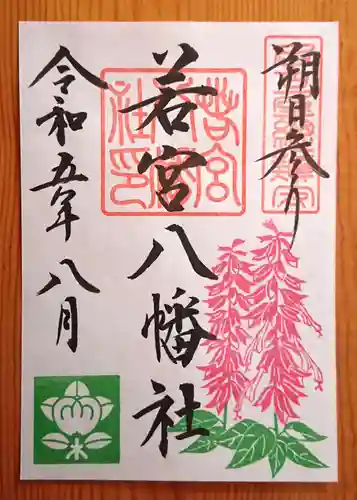 朔日参り
若宮八幡社
令和五年八月